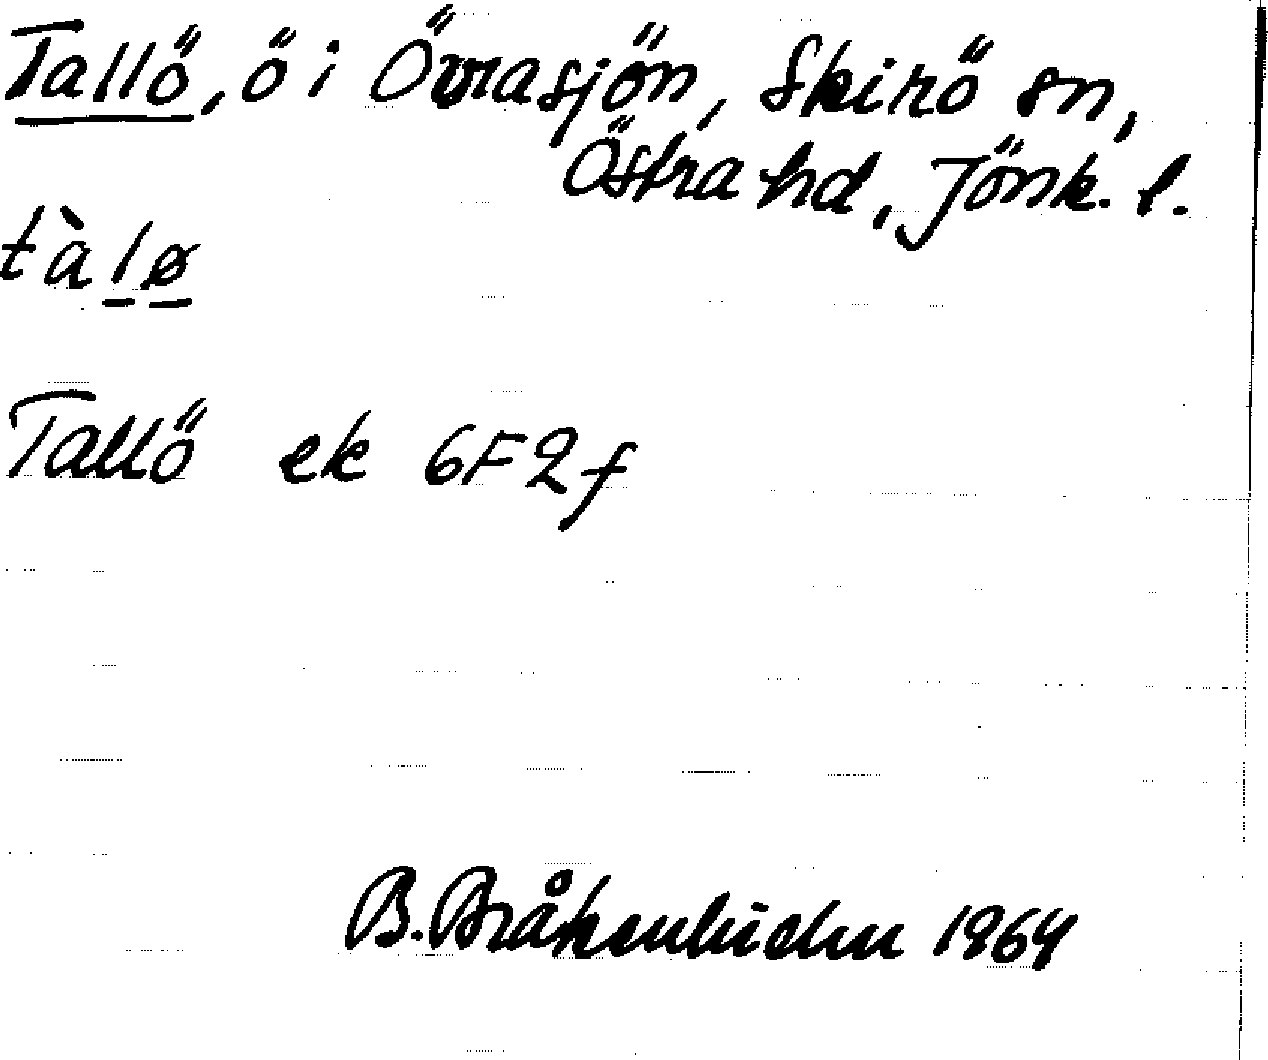 Tallö, ö i Övrasjön, Skirö sn,
Östra hd, Jönk. l.
tàlø
Tallö ek 6F2f
B. Bråkenhielm 1964